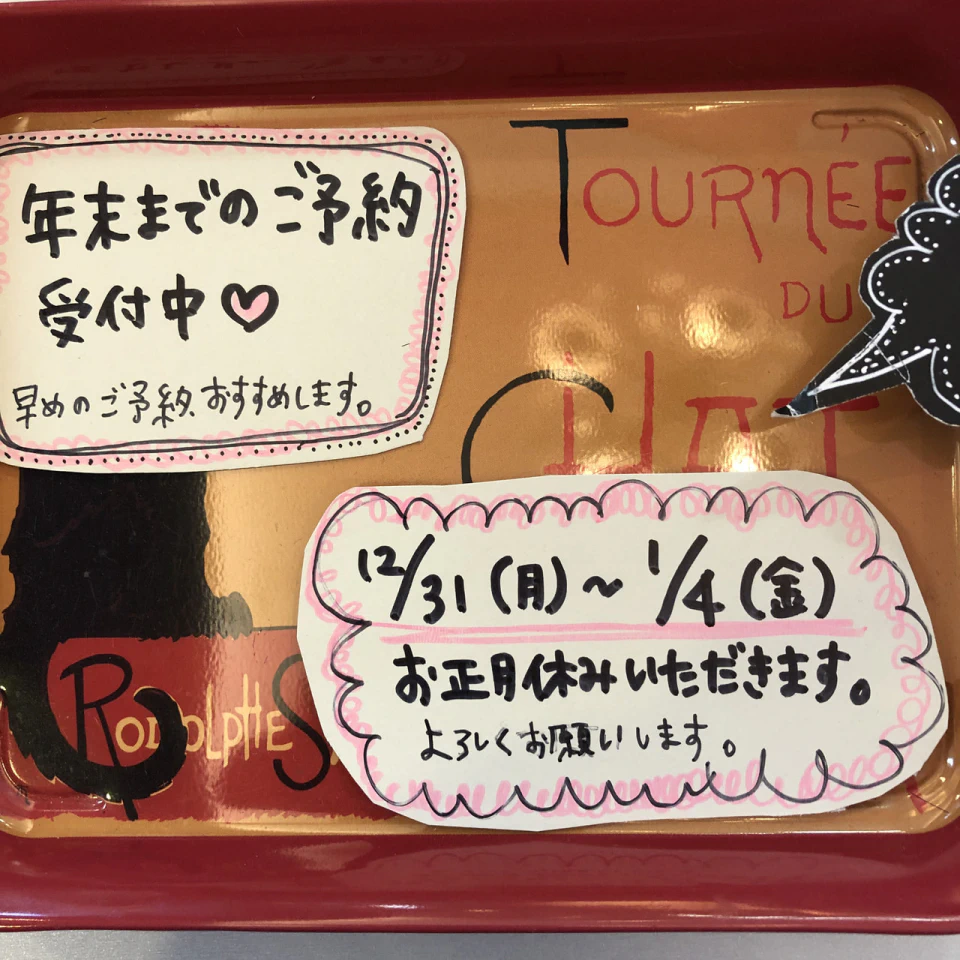 年末までのご予約
受付中♡
早めのご予約、おすすめします。
TOURNÉE
DU
CHAT
12/31(月)~1/4(金)
お正月休みいただきます。
よろしくお願いします。
RODOLPHE S